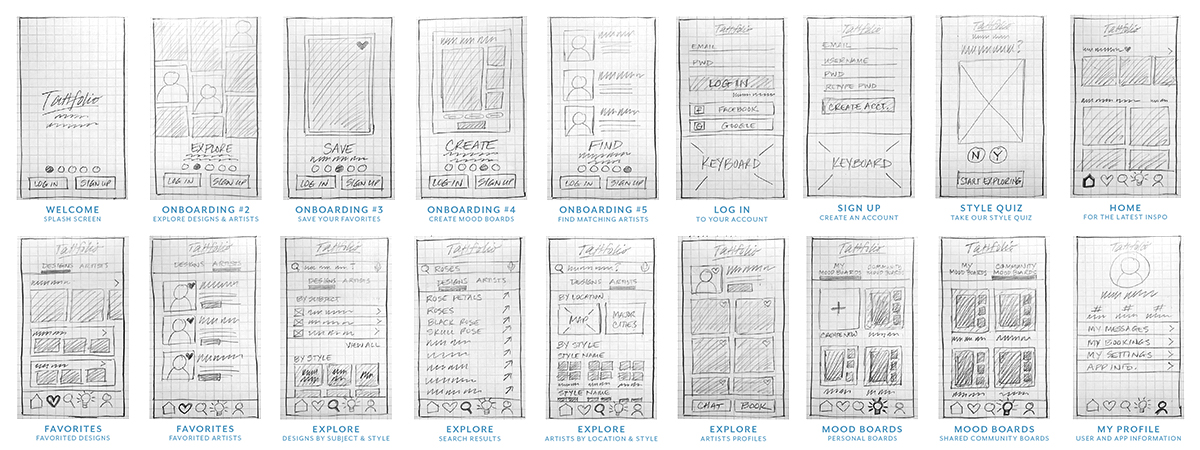 Tattfolio
LOG IN
SIGN UP
WELCOME
SPLASH SCREEN
EXPLORE
LOG IN
SIGN UP
ONBOARDING #2
EXPLORE DESIGNS & ARTISTS
SAVE
LOG IN
SIGN UP
ONBOARDING #3
SAVE YOUR FAVORITES
CREATE
LOG IN
SIGN UP
ONBOARDING #4
CREATE MOOD BOARDS
FIND
LOG IN
SIGN UP
ONBOARDING #5
FIND MATCHING ARTISTS
Tattfolio
EMAIL
PWD
LOG IN
FACEBOOK
G GOOGLE
KEYBOARD
LOG IN
TO YOUR ACCOUNT
Tattfolio
EMAIL
USERNAME
PWD
RETYPE PWD
CREATE ACCT.
KEYBOARD
SIGN UP
CREATE AN ACCOUNT
Tattfolio
?
N Y
START EXPLORING
STYLE QUIZ
TAKE OUR STYLE QUIZ
Tattfolio
HOME
FOR THE LATEST INSPO
Tattfolio
DESIGNS ARTISTS
FAVORITES
FAVORITED DESIGNS
Tattfolio
DESIGNS ARTISTS
FAVORITES
FAVORITED ARTISTS
Tattfolio
?
DESIGNS ARTISTS
BY SUBJECT
VIEW ALL
BY STYLE
EXPLORE
DESIGNS BY SUBJECT & STYLE
Tattfolio
ROSES
DESIGNS ARTISTS
ROSE PETALS
ROSES
BLACK ROSE
SKULL ROSE
EXPLORE
SEARCH RESULTS
Tattfolio
?
DESIGNS ARTISTS
BY LOCATION
MAP
MAJOR
CITIES
BY STYLE
STYLE NAME
STYLE NAME
EXPLORE
ARTISTS BY LOCATION & STYLE
Tattfolio
CHAT
BOOK
EXPLORE
ARTISTS PROFILES
Tattfolio
MY
MOOD BOARDS
COMMUNITY
MOOD BOARDS
+
CREATE NEW
MOOD BOARDS
PERSONAL BOARDS
Tattfolio
MY
MOOD BOARDS
COMMUNITY
MOOD BOARDS
MOOD BOARDS
SHARED COMMUNITY BOARDS
Tattfolio
# # #
MY MESSAGES
MY BOOKINGS
MY SETTINGS
APP INFO.
MY PROFILE
USER AND APP INFORMATION